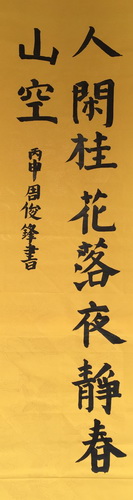 人閑桂花落夜靜春
山空
丙申周俊鋒書